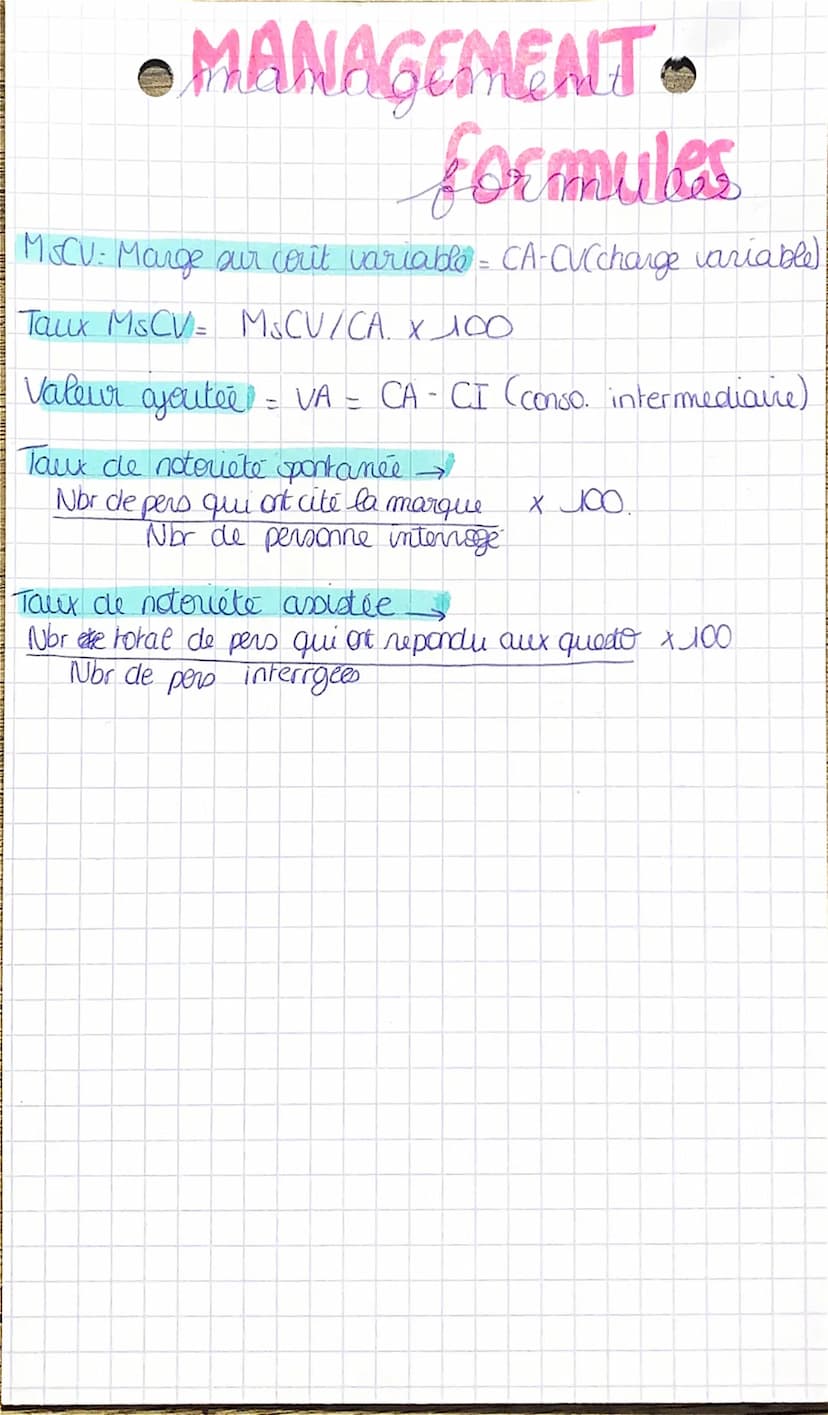 MANAGEMENT
management
formules
formules
MSCV: Marge sur coût variable = CA-CV(charge variable)
Taux MsCV = MsCV/CA. x 100
Valeur ajoutée = VA = CA - CI (conso. intermediaire)
Taux de noteriété spontanée →
Nbr de pers qui ont cité la marque x 100.
Nbr de personne interrogé
Taux de noteriété assistée →
Nbr de total de pers qui ont repondu aux questo x 100
Nbr de pers interrgées